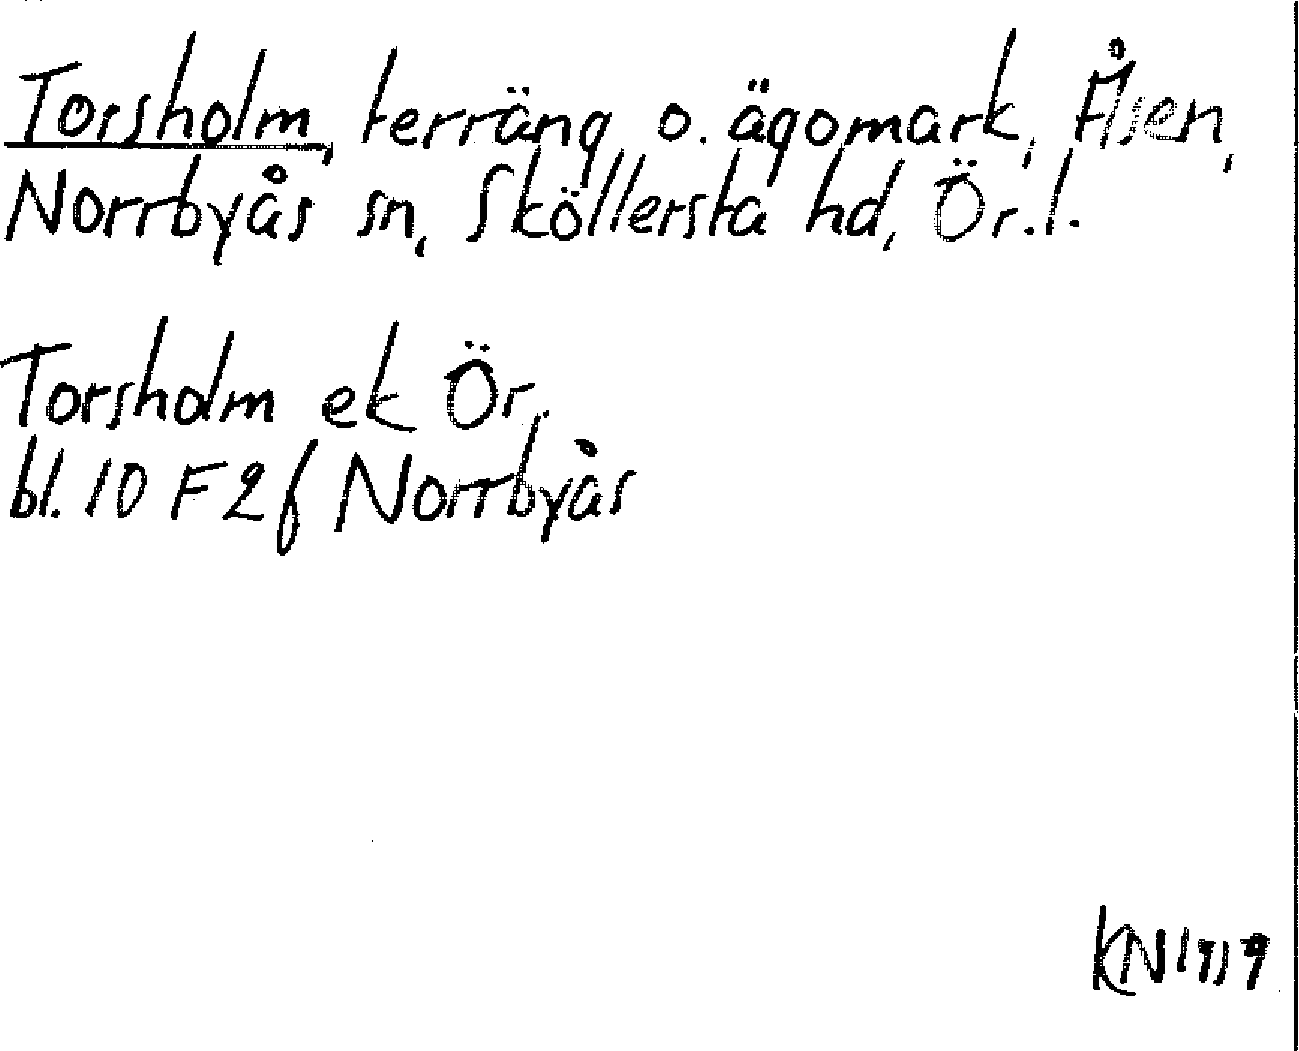 Torsholm, terräng o. ägomark, Åsen,
Norrbyås sn, Sköllersta hd, Ör. l.
Torsholm ek Ör.
bl. 10 F 2 f Norrbyås
KN